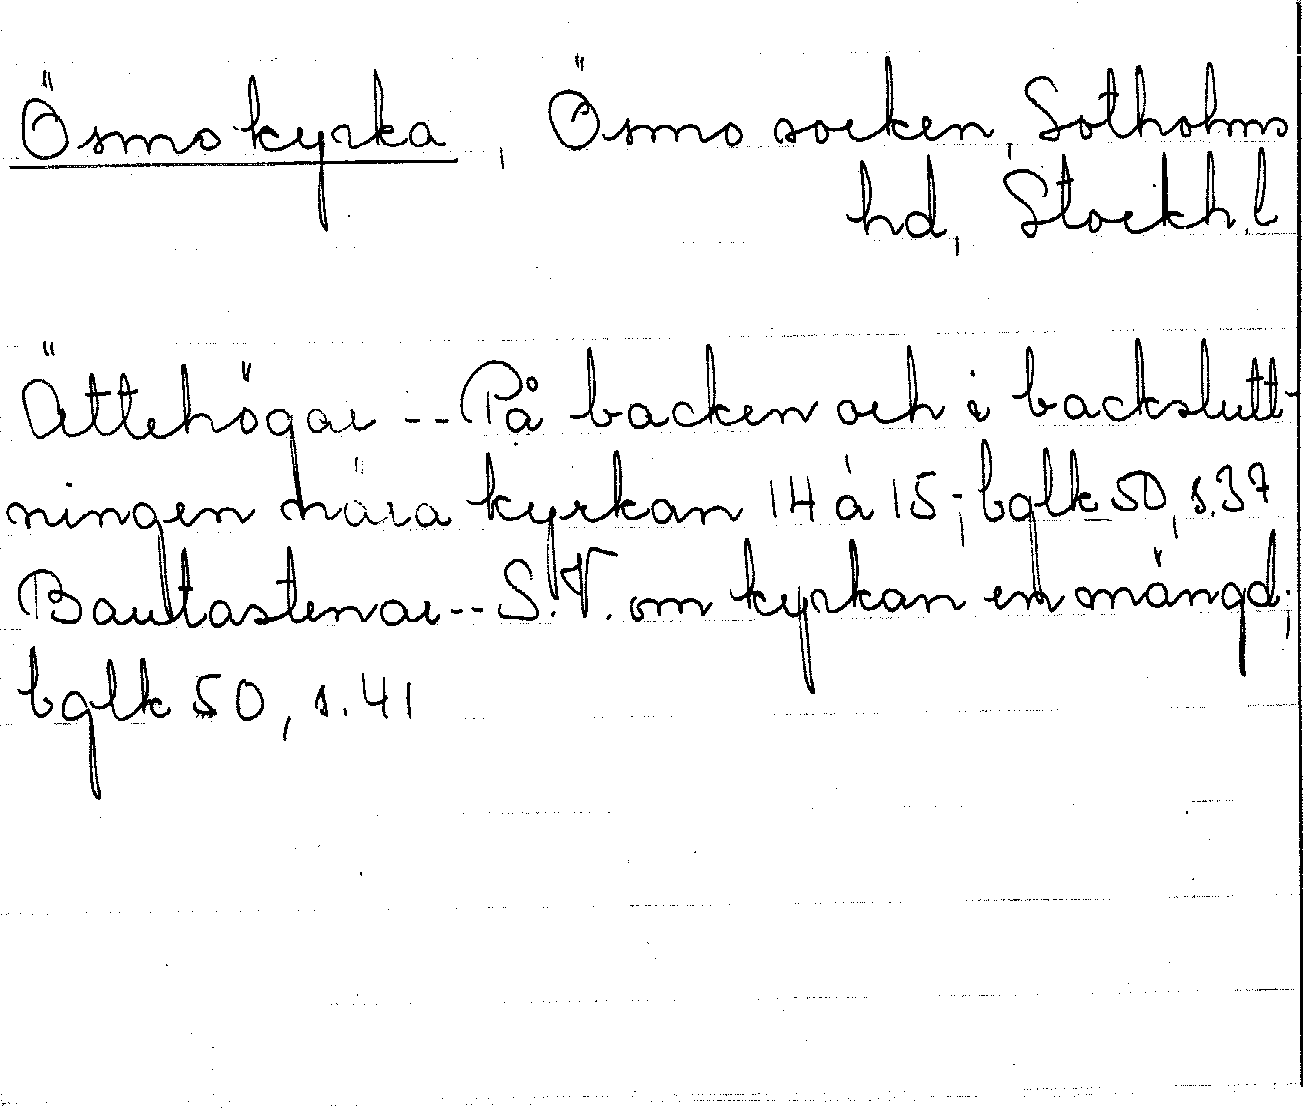 Ösmo kyrka, Ösmo socken, Sotholms
hd, Stockh.l
Ättehögar -- På backen och i backslutt-
ningen nära kyrkan 14 à 15; bglk 50, s.37
Bautastenar -- S.V. om kyrkan en mängd;
bglk 50, s.41